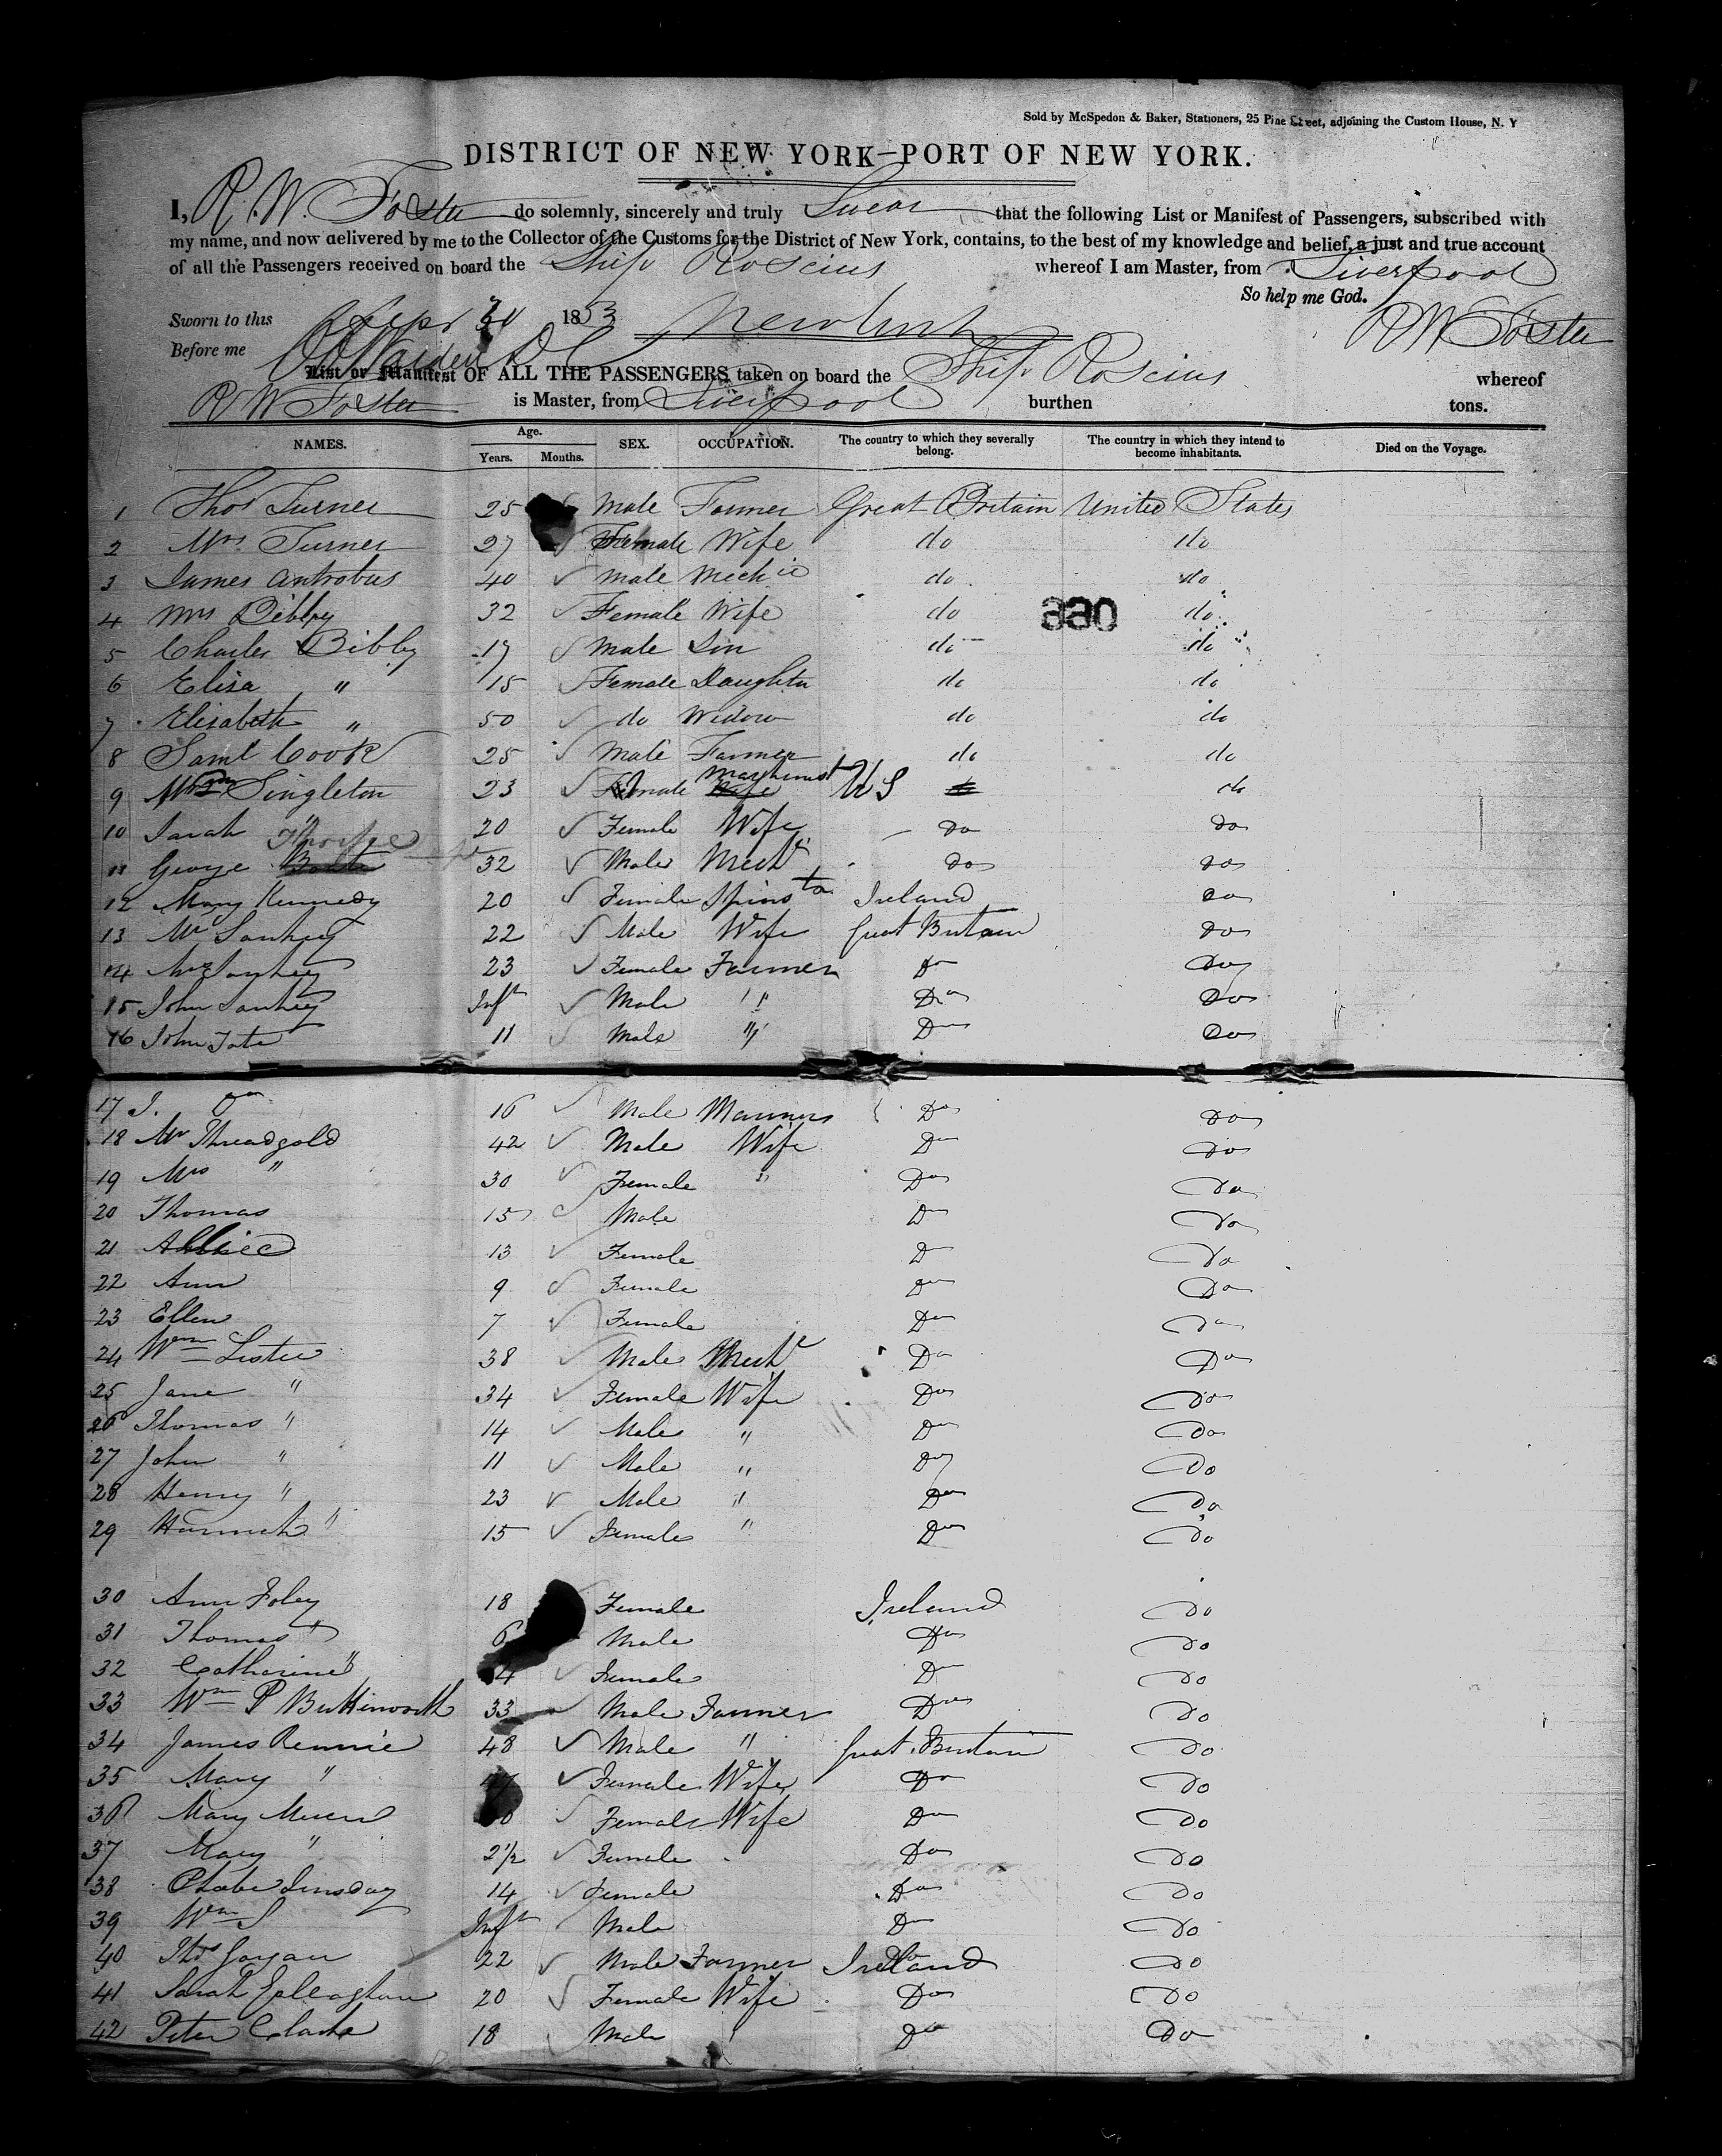 Sold by McSpedon & Baker, Stationers, 25 Pine Street, adjoining the Custom House, N. Y
DISTRICT OF NEW YORK—PORT OF NEW YORK.
I, R. W. Foster do solemnly, sincerely and truly Swear that the following List or Manifest of Passengers, subscribed with
my name, and now delivered by me to the Collector of the Customs for the District of New York, contains, to the best of my knowledge and belief, a just and true account
of all the Passengers received on board the Ship Roscius whereof I am Master, from Liverpool
So help me God.
Sworn to this 1853 R W Foster
Before me
List or Manifest OF ALL THE PASSENGERS taken on board the Ship Roscius whereof
R W Foster is Master, from Liverpool burthen tons.
NAMES. Age. SEX. OCCUPATION. The country to which they severally belong. The country in which they intend to become inhabitants. Died on the Voyage.
Years. Months.
1 Thos Turner 25 Male Farmer Great Britain United States
2 Mrs Turner 27 Female Wife do do
3 James Antrobus 40 Male Mech ic do do
4 Mrs Bibby 32 Female Wife do 220 do
5 Charles Bibby 17 Male Son do do
6 Eliza " 15 Female Daughter do do
7 Elisabeth " 50 do Widow do do
8 Saml Cook 25 Male Farmer do do
9 Wm Singleton 23 Male Machinist US do
10 Sarah " 20 Female Wife do do
11 George 32 Male Mech do do
12 Mary Kennedy 20 Female Spinster Ireland do
13 Mr Sankey 22 Male Wife Great Britain do
14 Mrs Sankey 23 Female Farmer Do Do
15 John Sankey Inft Male " Do Do
16 John Tate 11 Male " Do Do
17 J. Do 16 Male Mariners Do Do
18 Mr Threadgold 42 Male Wife Do Do
19 Mrs " 30 Female " Do Do
20 Thomas 15 Male Do Do
21 13 Female Do Do
22 Ann 9 Female Do Do
23 Ellen 7 Female Do Do
24 Wm Lister 38 Male Mech Do Do
25 Jane " 34 Female Wife Do Do
26 Thomas " 14 Male " Do Do
27 John " 11 Male " Do Do
28 Henry " 23 Male " Do Do
29 Hannah " 15 Female " Do Do
30 Ann Foley 18 Female Ireland Do
31 Thomas " 6 Male Do Do
32 Catharine " 4 Female Do Do
33 Wm P Butterworth 33 Male Farmer Do Do
34 James Rennie 48 Male " Great Britain Do
35 Mary " Female Wife Do Do
36 Mary Female Wife Do Do
37 Mary " 2½ Female Do Do
38 Phobe Linsday 14 Female Do Do
39 Wm S Inft Male Do Do
40 22 Male Farmer Ireland Do
41 Sarah 20 Female Wife Do Do
42 Peter Clarke 18 Male Do Do